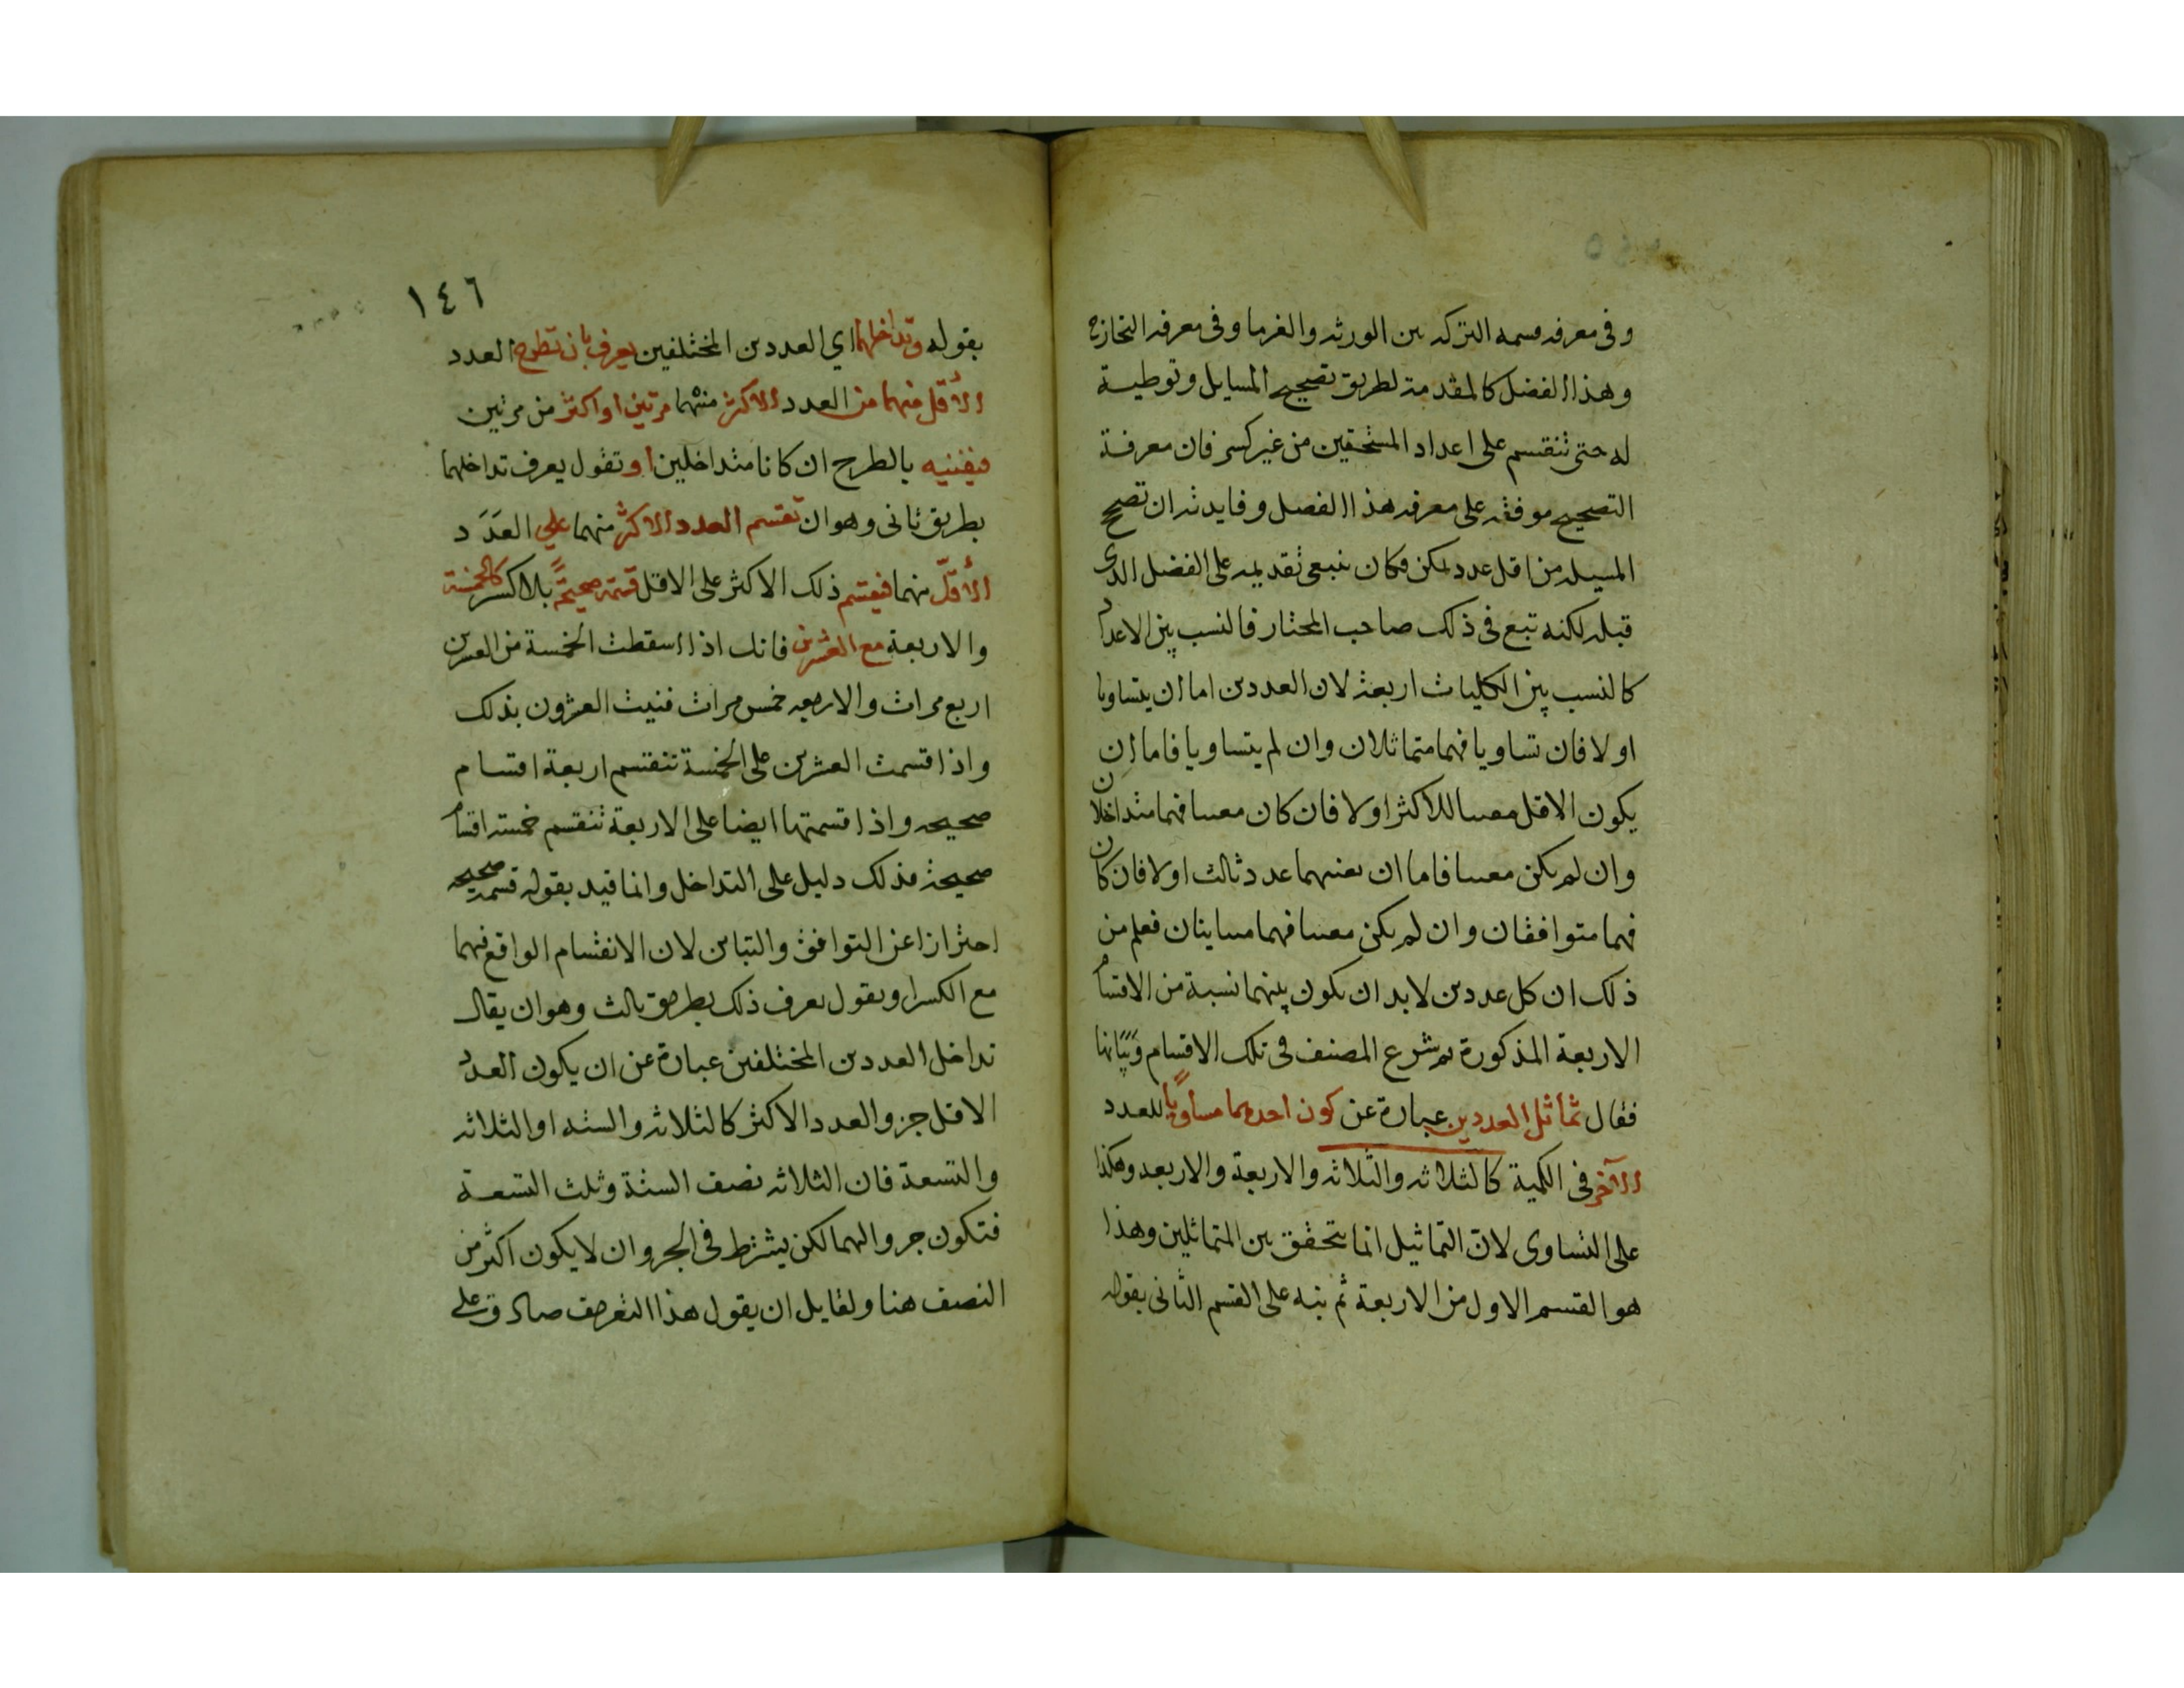 وفى معرفه قسمه التركه بين الورثه والغرما وفى معرفه التخارج
وهذا الفصل كالمقدمة لطريق تصحيح المسايل وتوطية
له حتى تنقسم على اعداد المستحقين من غير كسر فان معرفة
التصحيح موقفه على معرفه هذا الفصل وفايدته ان تصح
المسيله من اقل عدد يمكن وكان ينبغى تقديمه على الفصل الذى
قبله لكنه تبع فى ذلك صاحب المختار فالنسب بين الاعداد
كالنسب بين الكليات اربعة لان العددين اما ان يتساويا
او لا فان تساويا فهما متماثلان وان لم يتساويا فاما ان
يكون الاقل مفنيا للاكثر او لا فان كان مفنيا فهما متداخلان
وان لم يكن مفنيا فاما ان يفنيهما عدد ثالث او لا فان كان
فهما متوافقان وان لم يكن مفنيا فهما متباينان فعلم من
ذلك ان كل عددين لا بد ان يكون بينهما نسبة من الاقسام
الاربعة المذكورة ثم شرع المصنف فى تلك الاقسام وبيانها
فقال تماثل العددين عبارة عن كون احدهما مساويًا للعدد
الآخر فى الكمية كالثلاثه والثلاثه والاربعة والاربعه وهكذا
على التساوى لان التماثيل انما يتحقق بين المتماثلين وهذا
هو القسم الاول من الاربعة ثم نبه على القسم الثانى بقوله
١٤٦
بقوله وتداخلهما اي العددين المختلفين يعرف بان تطرح العدد
الأقل منهما من العدد الاكثر منهما مرتين او اكثر من مرتين
فيفنيه بالطرح ان كانا متداخلين او تقول يعرف تداخلهما
بطريق ثانى وهو ان تقسم العدد الاكثر منهما علي العدَد
الأقلّ منهما فيقسم ذلك الاكثر على الاقل قسمة صحيحةً بلا كسر كالخمسة
والاربعة مع العشرين فانك اذا اسقطت الخمسة من العشرين
اربع مرات والاربعه خمس مرات فنيت العشرون بذلك
واذا قسمت العشرين على الخمسة تنقسم اربعة اقسام
صحيحه واذا قسمتها ايضا على الاربعة تنقسم خمسه اقسام
صحيحة فذلك دليل على التداخل وانما قيد بقوله قسمه صحيحه
احترازا عن التوافق والتباين لان الانقسام الواقع فيهما
مع الكسر او يقول يعرف ذلك بطريق ثالث وهو ان يقال
تداخل العددين المختلفين عبارة عن ان يكون العدد
الاقل جزو العدد الاكثر كالثلاثه والسته او الثلاثه
والتسعة فان الثلاثه نصف الستة وثلث التسعة
فتكون جزوا لهما لكن يشترط فى الجزو ان لا يكون اكثر من
النصف هنا ولقايل ان يقول هذا التعريف صادق على